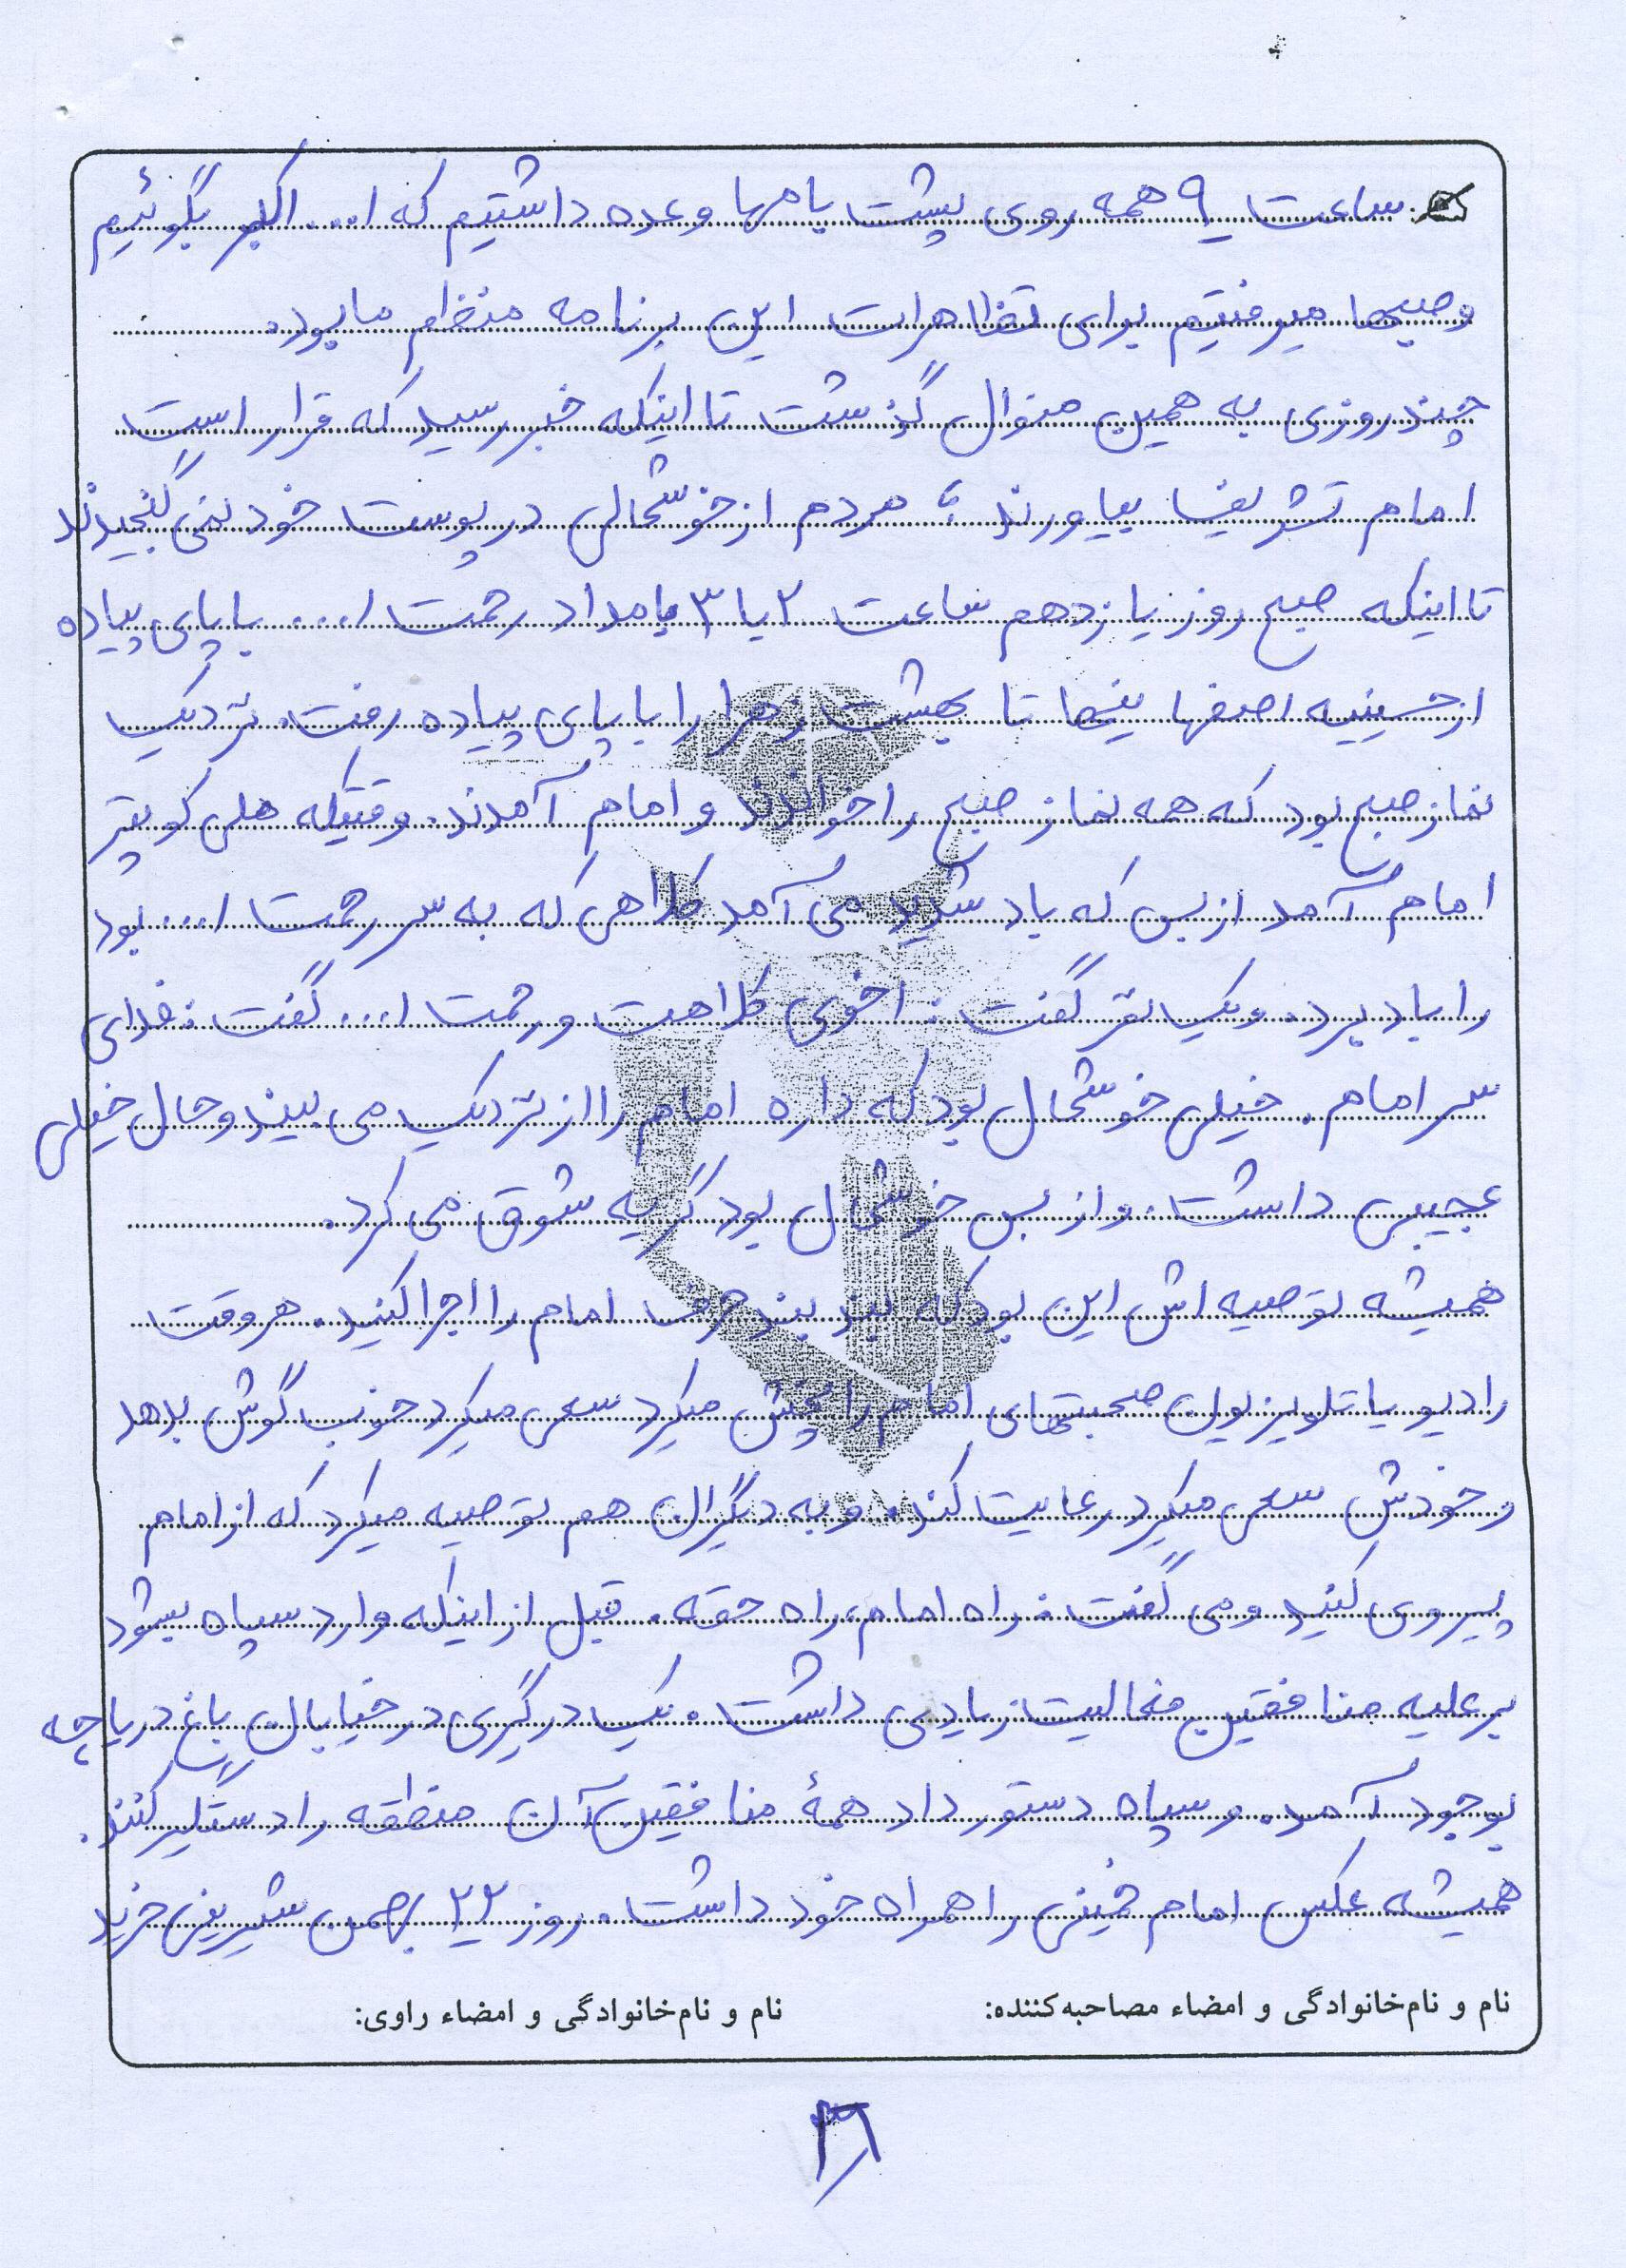 ساعت ۹ همه روی پشت بامها وعده داشتیم که ا... اکبر بگوئیم
وصبحها میرفتیم برای تظاهرات این برنامه منظم ما بود.
چند روزی به همین منوال گذشت تا اینکه خبر رسید که قرار است
امام تشریف بیاورند ؛ مردم از خوشحالی در پوست خود نمی گنجیدند
تا اینکه صبح روز یازدهم ساعت ۲ یا ۳ بامداد رحمت ا... با پای پیاده
از حسینیه اصفهانیها تا بهشت زهرا را با پای پیاده رفت. نزدیک
نماز صبح بود که همه نماز صبح را خواندند و امام آمدند. وقتیکه هلی کوپتر
امام آمد از بس که باد شدید می آمد کلاهی که به سر رحمت ا... بود
را باد برد. ویک نفر گفت : اخوی کلاهت و رحمت ا... گفت : فدای
سر امام. خیلی خوشحال بود که داره امام را از نزدیک می بیند و حال خیلی
عجیبی داشت. و از بس خوشحال بود گریه شوق می کرد.
همیشه توصیه اش این بود که بند بند حرف امام را اجرا کنید. هر وقت
رادیو یا تلویزیون صحبتهای امام را پخش میکرد سعی میکرد خوب گوش بدهد
و خودش سعی میکرد رعایت کند. و به دیگران هم توصیه میکرد که از امام
پیروی کنید و می گفت : راه امام، راه حقه. قبل از اینکه وارد سپاه بشود
بر علیه منافقین فعالیت زیادی داشت. یک درگیری در خیابان باغ دریاچه
بوجود آمد. و سپاه دستور داد همهٔ منافقین آن منطقه را دستگیر کنند.
همیشه عکس امام خمینی را همراه خود داشت. روز ۲۲ بهمن شیرینی خرید
نام و نام‌خانوادگی و امضاء مصاحبه‌کننده: نام و نام‌خانوادگی و امضاء راوی: